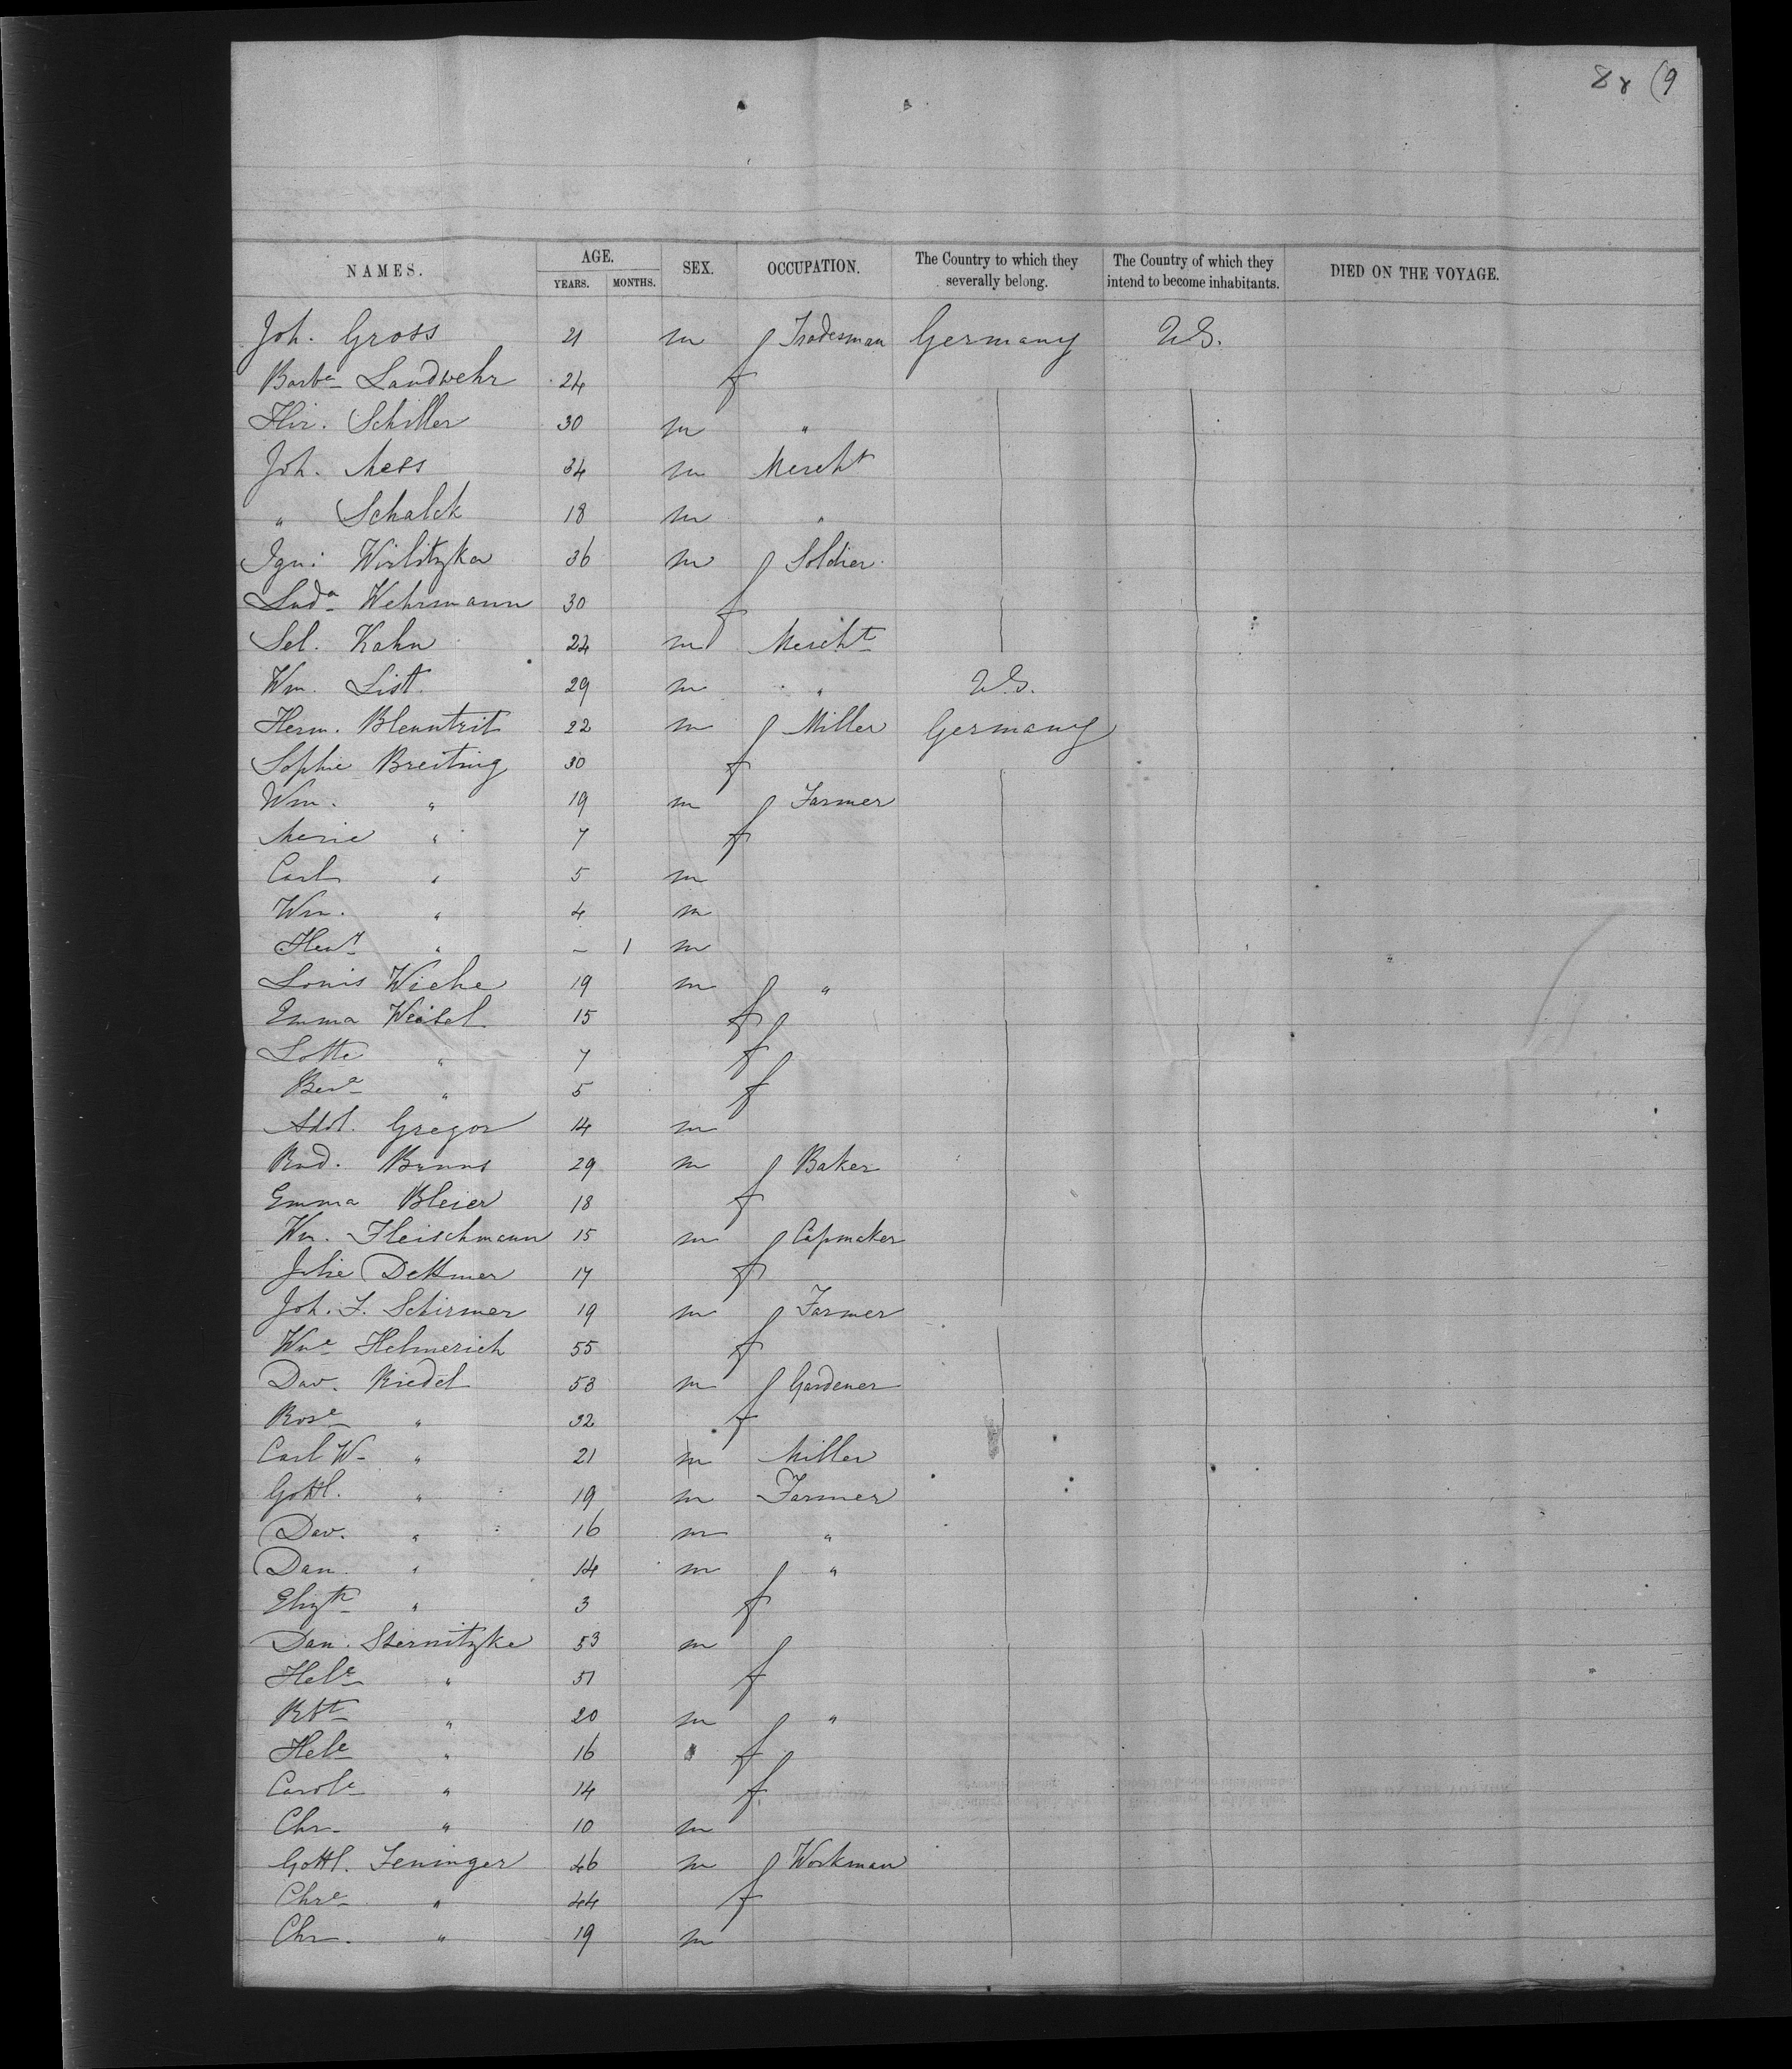 (9
NAMES. AGE. YEARS. MONTHS. SEX. OCCUPATION. The Country to which they severally belong. The Country of which they intend to become inhabitants. DIED ON THE VOYAGE.
Joh. Gross 21 m Tradesman Germany U.S.
Barba Landwehr 24 f
Schiller 30 m "
Joh. Mess 34 m Mercht
" Schalck 18 m "
Ign: Wirlitzka 36 m Soldier
Luda Wehrmann 30 f
Sel. Kahn 24 m Mercht
Wm. List 29 m " U.S.
Herm. Blenntrit 22 m Miller Germany
Sophie Breiting 30 f
Wm. " 19 m Farmer
Marie " 7 f
Carl " 5 m
Wm. " 4 m
Heny " - 1 m
Louis Wiehe 19 m "
Emma Weisel 15 f
Lotte " 7 f
" 5 f
Adol. Gregor 14 m
Rud. Bruns 29 m Baker
Emma Bleier 18 f
Wm. Fleischmann 15 m Capmaker
Julie Dettmer 17 f
Joh. F. Schirmer 19 m Farmer
Wme Helmerich 55 f
Dav. Riedel 53 m Gardener
Rose " 32 f
Carl W. " 21 m Miller
Gottl. " 19 m Farmer
Dav. " 16 m "
Dan. " 14 m "
Elizth " 3 f
Dan. Sternitzke 53 m
Hele " 51 f
Rbt " 20 m "
Hele " 16 f
Carole " 14 f
Chr. " 10 m
Gottl. Feninger 46 m Workman
Chre " 44 f
Chr. " 19 m